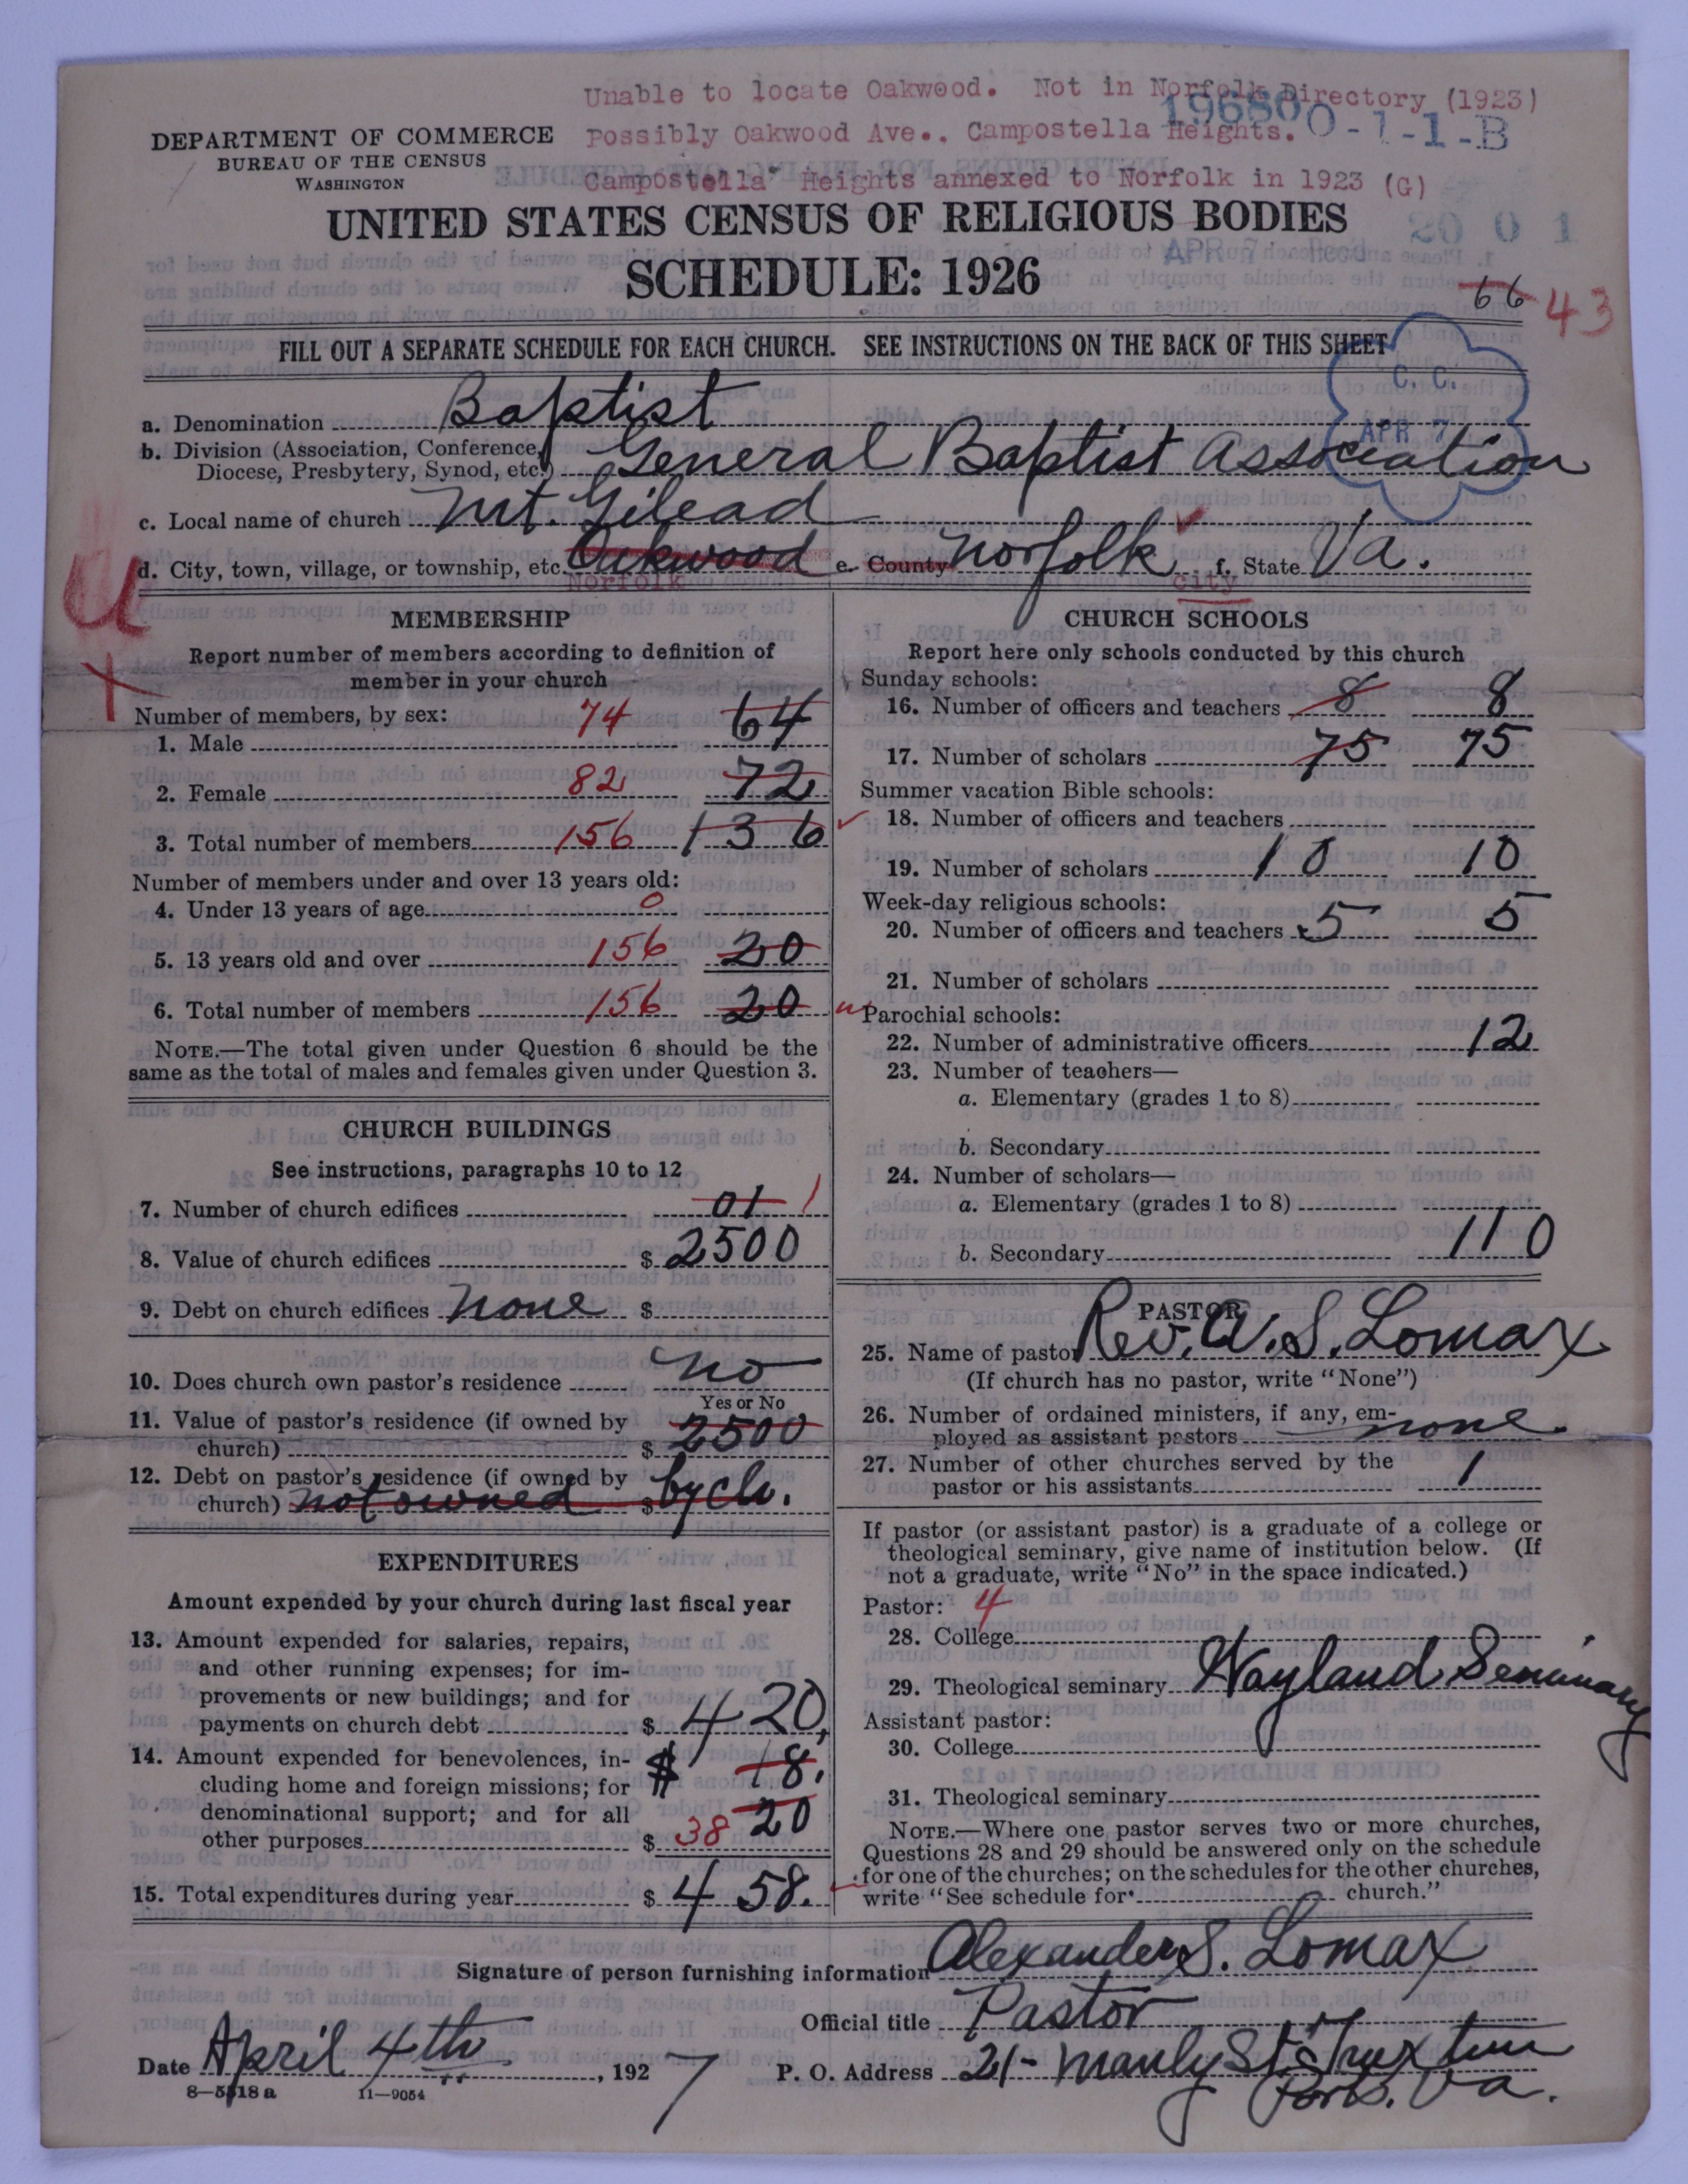 Unable to locate Oakwood. Not in Norfolk Directory (1923)
Possibly Oakwood Ave., Campostella Heights.
Campostella Heights annexed to Norfolk in 1923 (G)
196800-1-1-B
DEPARTMENT OF COMMERCE
BUREAU OF THE CENSUS
WASHINGTON
UNITED STATES CENSUS OF RELIGIOUS BODIES
20 0 1
APR 7 Recd
SCHEDULE: 1926
66 43
FILL OUT A SEPARATE SCHEDULE FOR EACH CHURCH. SEE INSTRUCTIONS ON THE BACK OF THIS SHEET
C. C.
APR 7
a. Denomination Baptist
b. Division (Association, Conference,
Diocese, Presbytery, Synod, etc.) General Baptist Association
c. Local name of church Mt. Gilead
d. City, town, village, or township, etc. Oakwood e. County Norfolk f. State Va.
Norfolk city
U
MEMBERSHIP
Report number of members according to definition of
member in your church
Number of members, by sex:
1. Male 74 64
2. Female 82 72
3. Total number of members 156 136
Number of members under and over 13 years old:
4. Under 13 years of age 0
5. 13 years old and over 156 20
6. Total number of members 156 20
NOTE.—The total given under Question 6 should be the
same as the total of males and females given under Question 3.
CHURCH BUILDINGS
See instructions, paragraphs 10 to 12
7. Number of church edifices 01 1
8. Value of church edifices $ 2500
9. Debt on church edifices none $
10. Does church own pastor's residence no
Yes or No
11. Value of pastor's residence (if owned by
church) $ 2500
12. Debt on pastor's residence (if owned by
church) not owned $ by ch.
EXPENDITURES
Amount expended by your church during last fiscal year
13. Amount expended for salaries, repairs,
and other running expenses; for im-
provements or new buildings; and for
payments on church debt $ 420,
14. Amount expended for benevolences, in- $ 18.
cluding home and foreign missions; for
denominational support; and for all 20
other purposes $ 38
15. Total expenditures during year $ 458.
CHURCH SCHOOLS
Report here only schools conducted by this church
Sunday schools:
16. Number of officers and teachers 8 8
17. Number of scholars 75 75
Summer vacation Bible schools:
18. Number of officers and teachers
19. Number of scholars 10 10
Week-day religious schools:
20. Number of officers and teachers 5 5
21. Number of scholars
Parochial schools:
22. Number of administrative officers 12
23. Number of teachers—
a. Elementary (grades 1 to 8)
b. Secondary
24. Number of scholars—
a. Elementary (grades 1 to 8)
b. Secondary 110
PASTOR
25. Name of pastor Rev. A. S. Lomax
(If church has no pastor, write "None")
26. Number of ordained ministers, if any, em-
ployed as assistant pastors none.
27. Number of other churches served by the
pastor or his assistants 1
If pastor (or assistant pastor) is a graduate of a college or
theological seminary, give name of institution below. (If
not a graduate, write "No" in the space indicated.)
Pastor: 4
28. College
29. Theological seminary Wayland Seminary
Assistant pastor:
30. College
31. Theological seminary
NOTE.—Where one pastor serves two or more churches,
Questions 28 and 29 should be answered only on the schedule
for one of the churches; on the schedules for the other churches,
write "See schedule for church."
Signature of person furnishing information Alexander S. Lomax
Official title Pastor
Date April 4th, 1927 P. O. Address 21- Manly St. Truxtun
Ports. Va.
8—5518 a 11—9054